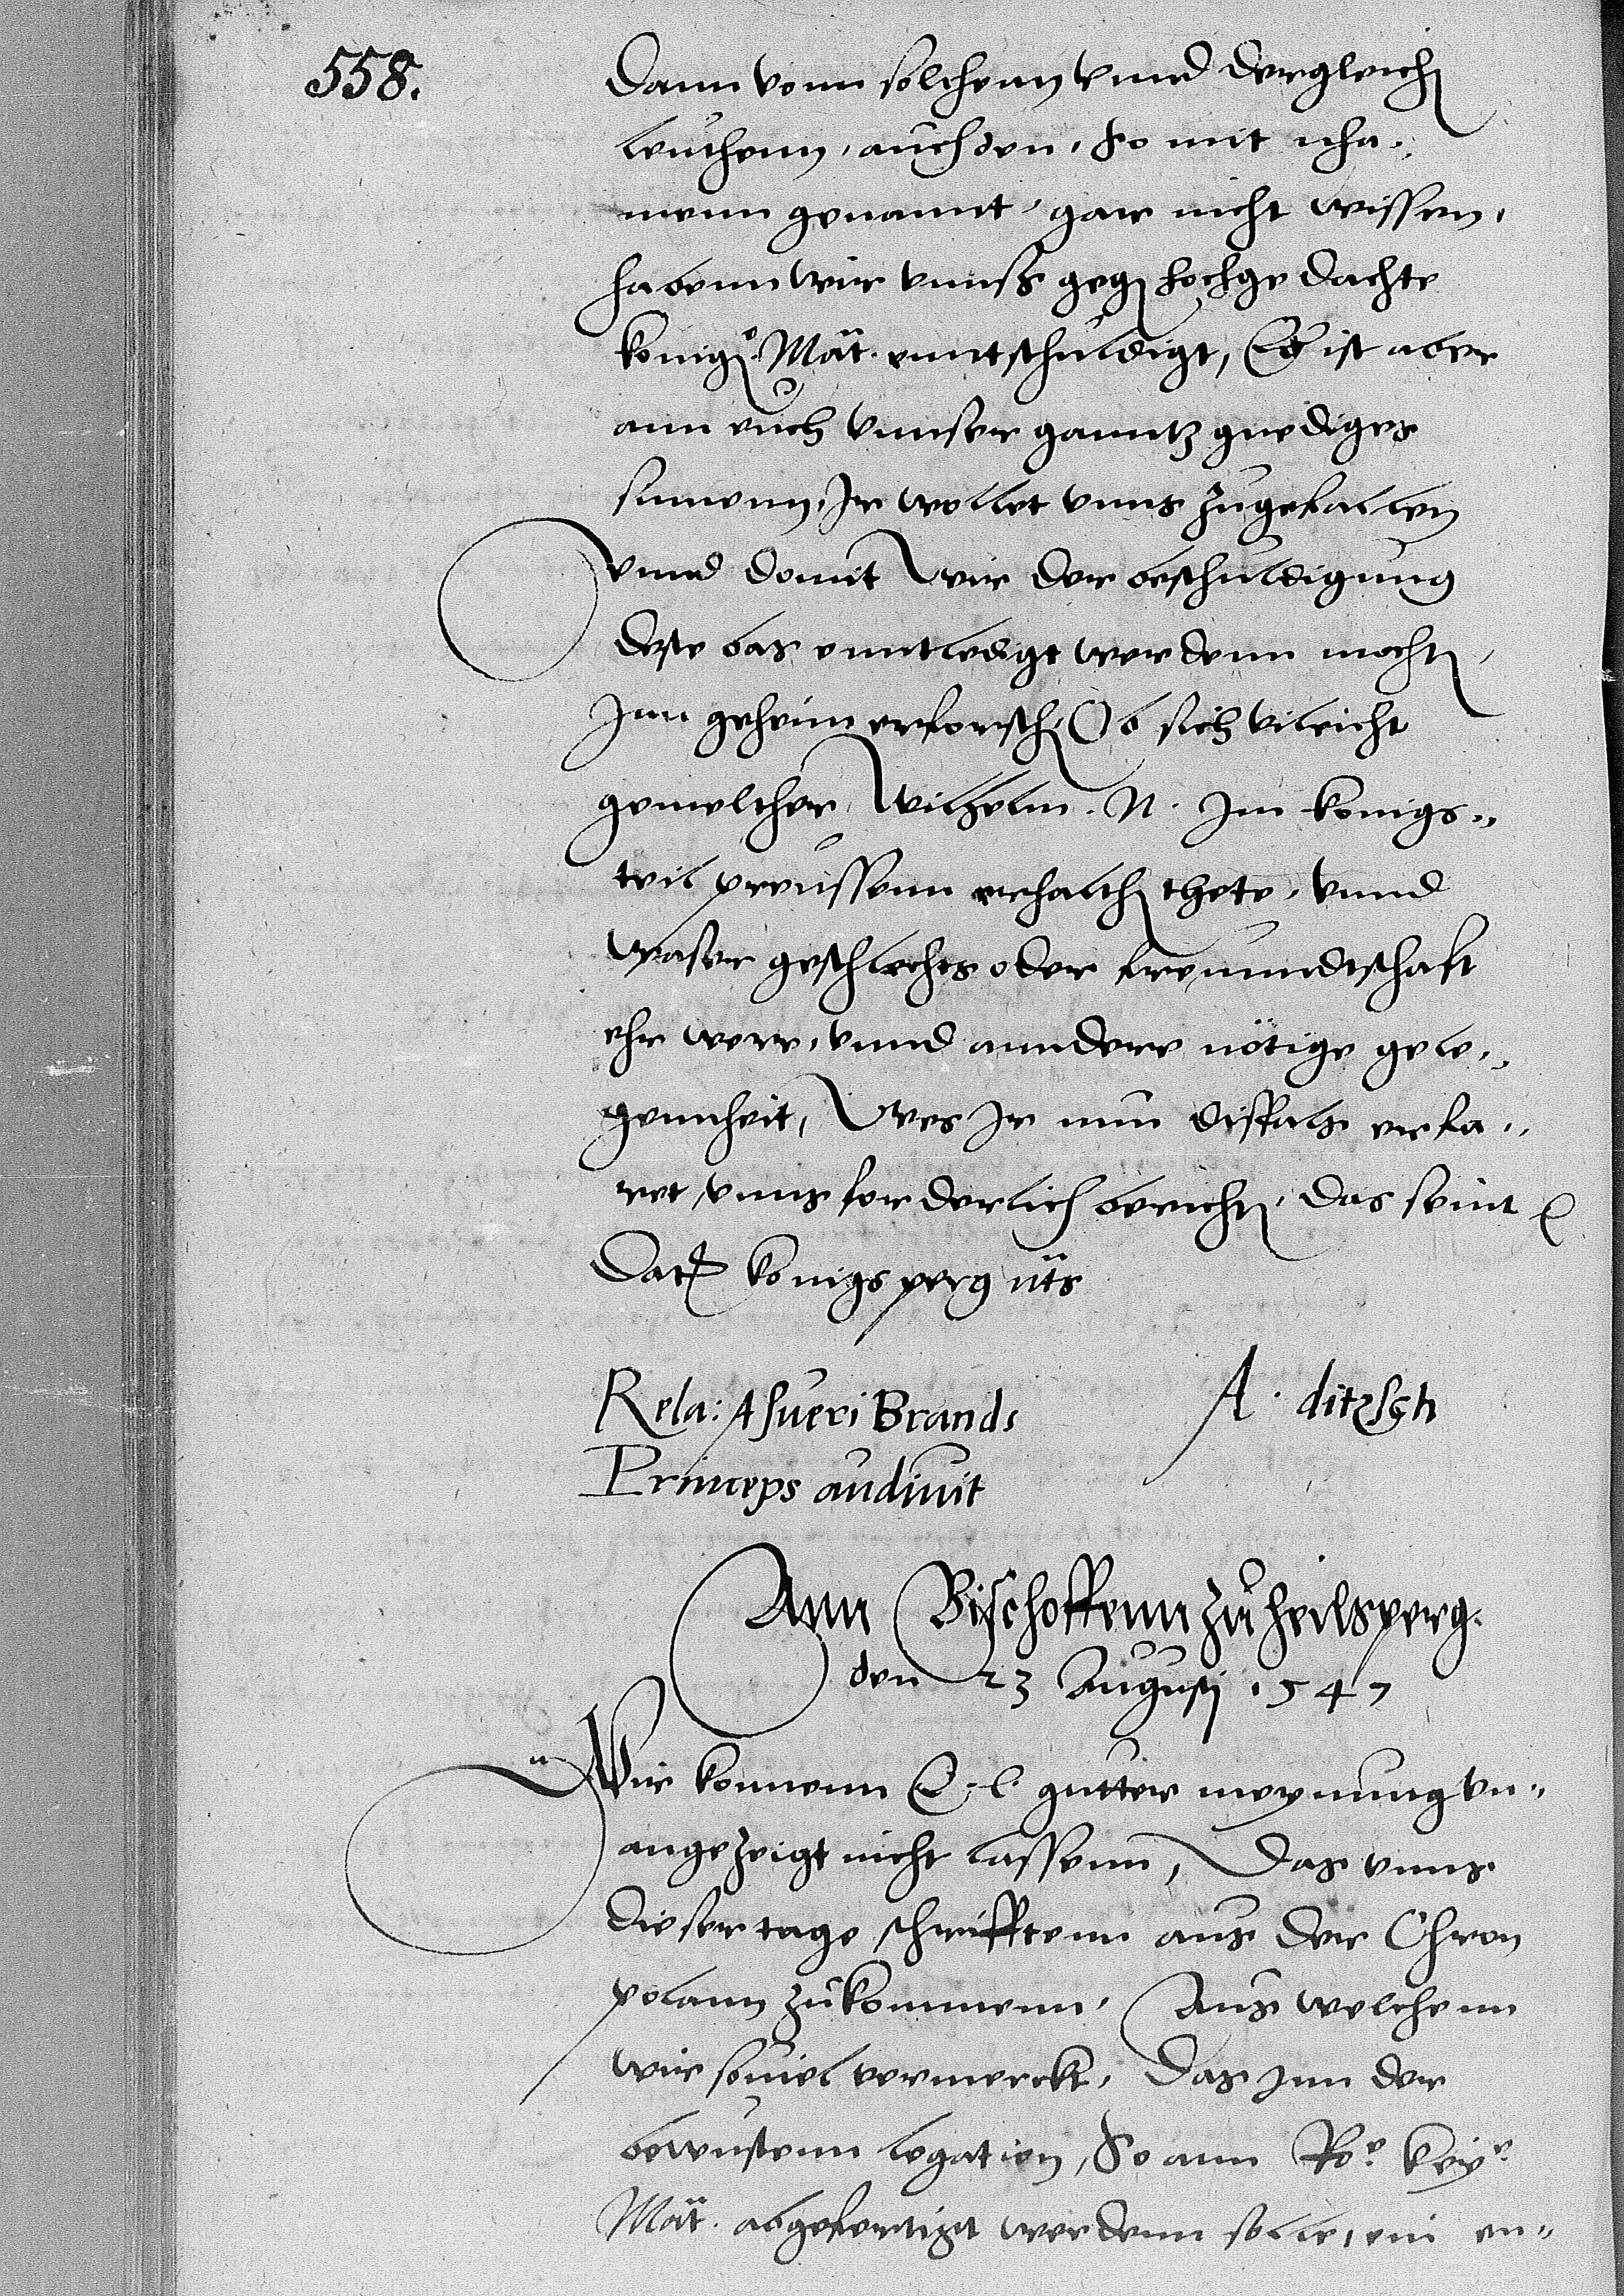 558.
Dann vonn solchenn vnnd dergleichen
leuthenn, auch den, so mit nha-
menn genannt, gar nicht wissenn,
habenn wir vnnß gegen hochgedachte
königr. Mät. enntschuldigt, Es ist aber
ann euch vnnser ganntz gnediges
sinnenn, Ir wollet vnns zugefallen
vnnd domit wir der beschuldigung
deste bas enntledigt werdenn mochten,
Inn geheim erforschen, Ob sich vileicht
gemelther Wilhelm. N. Im konigs-
teil preussenn erhalthen thete, vnnd
waser geschlechts oder freunndtschaft
ehr were, vnnd anndere nötige gele-
gennheit, Wes Ir nun disfals erfa-
ret, vnns forderlich berichten, das seint
Datum konigsperg uts
Rela: Asueri Brands
A. ditzsch
Princeps audiuit
Ann Bischoffenn zu heilsperg.
den 23 Augusti 1547
Wir konnenn E. l. gutter meynung vn-
angezeigt nicht lassenn, Das vnns
dieser tage schrifftenn aus der Chron
polann zukommenn, Aus welchenn
wir souiel vermerckt, Das Inn der
bewustenn legation, So ann Ro. key.
Mät. abgefertigt werdenn solle, ein en-